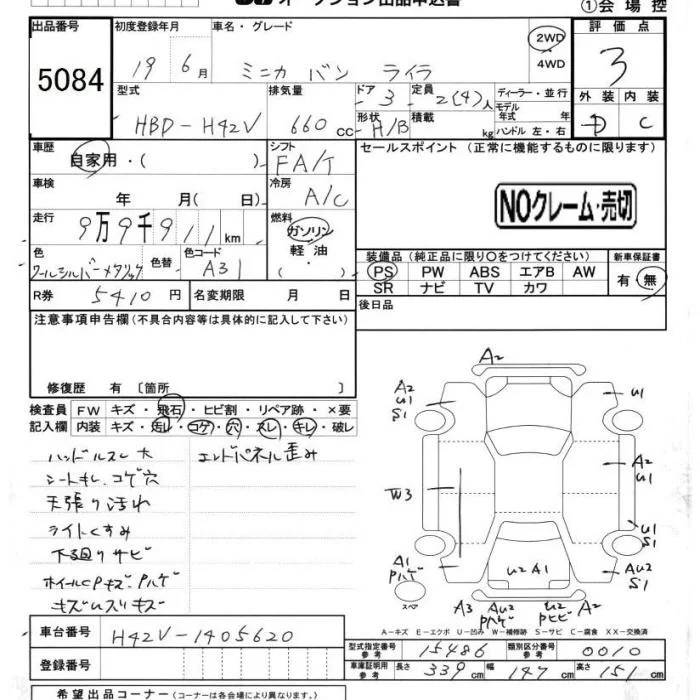 オークション出品申込書
①会場控
出品番号 初度登録年月 車名・グレード 2WD 4WD 評価点
5084 19 6月 ミニカ バン ライラ 3
型式 排気量 ドア 定員 ディーラー・並行 外装 内装
HBD-H42V 660cc 3 2(4)人 モデル年式 年 D C
形状 H/B 積載 kg ハンドル 左・右
車歴 自家用・( ) シフト FA/T セールスポイント (正常に機能するものに限ります)
車検 年 月( 日) 冷房 A/C NOクレーム・売切
走行 9万9千911km 燃料 ガソリン 軽油 ( )
色 クールシルバーメタリック 色替 色コード A31
装備品 (純正品に限り○をつけてください) 新車保証書
PS PW ABS エアB AW 有・無
SR ナビ TV カワ
R券 5410円 名変期限 月 日 後日品
注意事項申告欄 (不具合内容等は具体的に記入して下さい)
修復歴 有 [箇所 ]
検査員 FW キズ・飛石・ヒビ割・リペア跡・×要
記入欄 内装 キズ・汚レ・コゲ・穴・スレ・キレ・破レ
ハンドルスレ大 エンドパネル歪み
シートキレ.コゲ穴
天張り汚れ
ライトくすみ
下廻りサビ
ホイールCPキズ.Pハゲ
キズUスリキズ
A2
A2 U1 S1
U1
A2 U1
W3
U1 S1
A1 Pハゲ
U2 A1
AU2 S1
スペア
A3 AU2 Pハゲ U2 Pヒビ A2
A-キズ E-エクボ U-凹み W-補修跡 S-サビ C-腐食 XX-交換済
車台番号 H42V-1405620
型式指定番号 参考 15486 類別区分番号 参考 0010
登録番号
車庫証明用 参考 長さ 339cm 幅 147cm 高さ 151cm
希望出品コーナー (コーナーは各会場により異なります。)